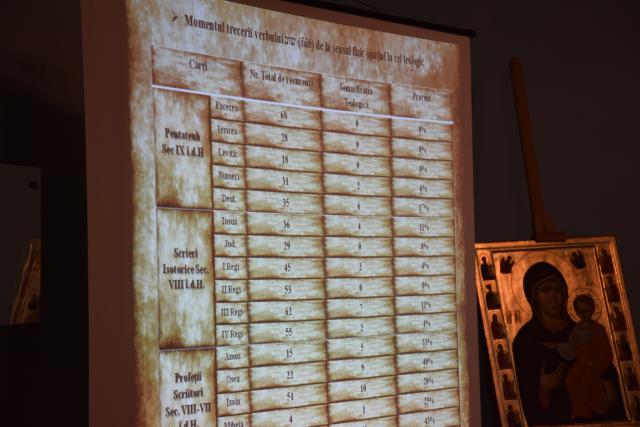 ➤ Momentul trecerii verbului שוב (šûb) de la sensul fizic spaţial la cel teologic
Carţi Nr. Total de recurenţe Semnificaţia Teologică Procent
Pentateuh Sec IX i.d.H
Facerea 68 0 0%
Iesirea 28 0 0%
Levitic 18 0 0%
Numeri 31 2 6%
Deut. 35 6 17%
Scrieri Isotorice Sec. VIII i.d.H.
Iosua 36 4 11%
Jud. 29 0 0%
I Regi 45 2 4%
II Regi 53 0 0%
III Regi 62 7 11%
IV Regi 55 2 4%
Profeţii Scriitori Sec. VIII-VII i.d.H.
Amos 15 5 33%
Osea 22 9 40%
Isaia 51 10 20%
Miheia 4 1 25%
43%